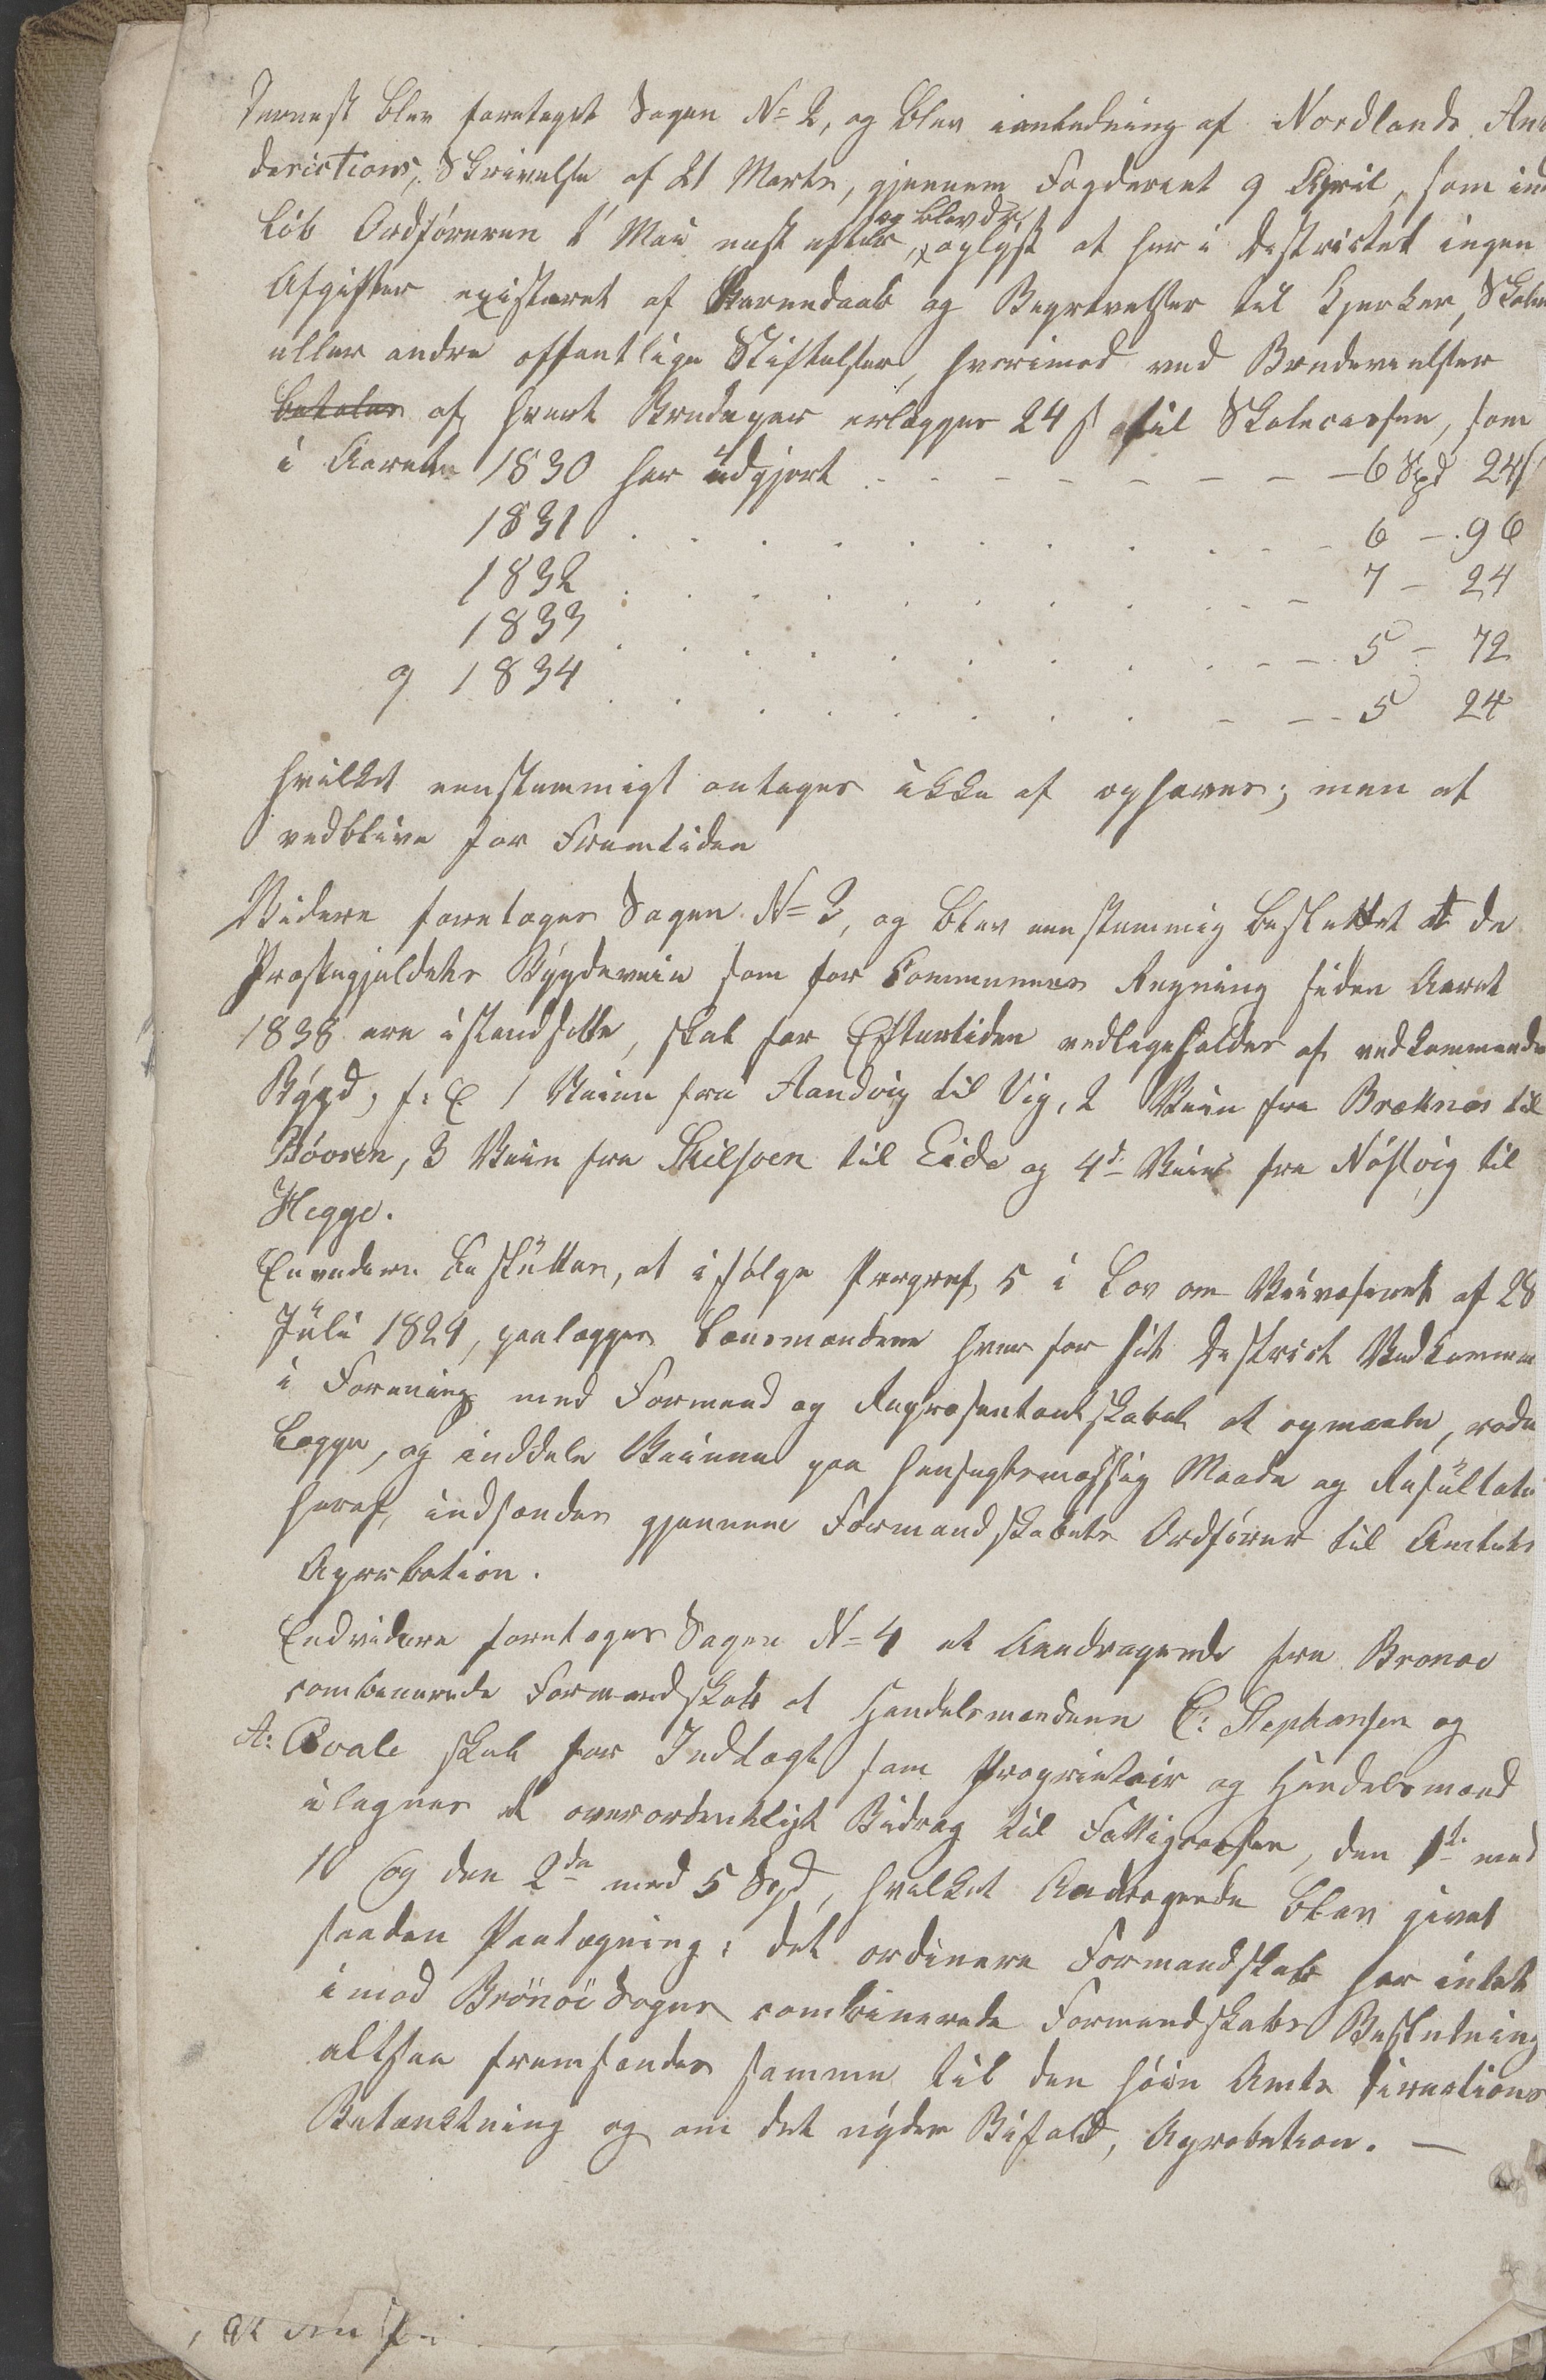 Dernæst blev foretaget Sagen No 2, og blev i anledning af Nordlands Amt
derictions, Skrivelse af 21 Marts, gjennem Fogderiet 9 April, som ind
løb Ordføreren 1 Mai næst efter, og blev da oplyst at her i Destrictet ingen
Afgifter existeret af Barnedaab og Begravelser til Kjerker, Skoler
eller andre offentlige Stiftelser, hvorimod ved Brudevielser
betales af hvert Brudepar erlægges 24 s til Skolecassen, som
i Aarene 1830 har udgjort - - - - - - - 6 Spd 24 s
1831 . . . . . . . . - - 6 - 96
1832 . . . . . . . . - - 7 - 24
1833 . . . . . . . . - - 5 - 72
og 1834 . . . . . . . - - 5 24
hvilket eenstemmigt antages ikke at ophæves; men at
vedblive for Fremtiden
Videre foretages Sagen No 3, og blev eenstemmig besluttet at de
Præstegjeldets Bygdeveie som for Communens Regning siden Aaret
1838 ere istandsatte, skal for Eftertiden vedligeholdes af vedkommende
Bygd, f: E 1 Veien fra Aandvig til Vig, 2 Veien fra Bræknes til
Bøoren, 3 Veien fra Skilsoen til Eide og 4d Veien fra Nøstvig til
Hegge.
Envidere besluttes, at ifølge Pargraf 5 i Lov om Veivæsenet af 28
Juli 1824, paalægges Lensmændene hver for sit Destrict Vedkommen
i Forening med Formend og Repræsentantskabet at opmaale, rode
lægge, og inddele Veiene paa hensigtsmæssig Maade og Resultate
heraf, indsendes gjennem Formandskabets Ordfører til Amtets
Aprobation.
Endvidere foretages Sagen No 4 et Andragende fra Bronoe
combenerede Formandskab at Handelsmændene C: Stephansen og
A: Qvale skal for Indtægt som Proprietair og Handelsmænd
ilegnes et overordentligt Bidrag til Fattigcassen, den 1te med
10 og den 2den med 5 Spd, hvilket Andragende blev givet
saadan Paategning: det ordinere Formandskab har intet
imod Brönöe Sogns combinerede Formandskabs Beslutning
altsaa fremsendes samme til den høie Amts Directions
Betænkning og om det nyder Bifald, Aprobation. —